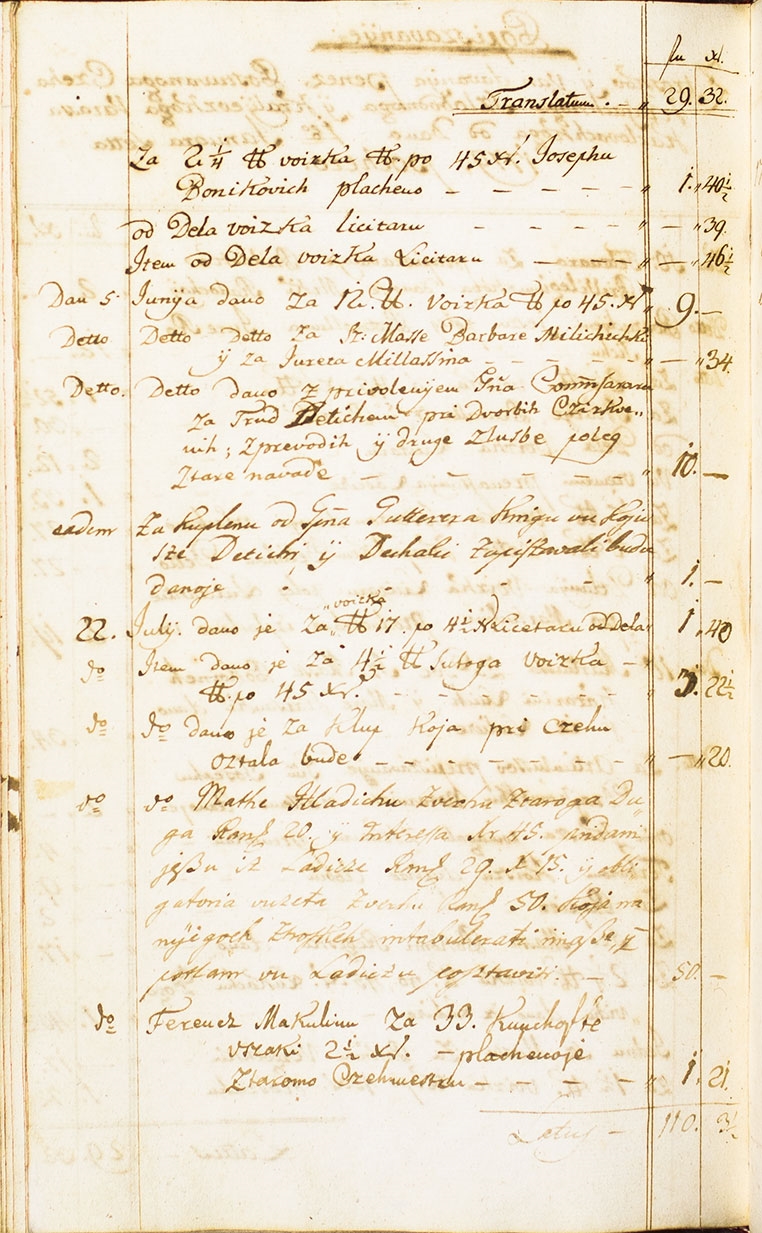 fl xr.
Translatum. — „ 29. 32.
Za 2 1/4 ℔ voizka ℔. po 45 xr. Josephu
Bonikovich placheno — — — — — „ 1. „ 40 1/2
od Dela voizka licitaru — — — — „ — „ 39.
Item od Dela voizka Licitaru — — — „ — „ 46 1/2
Dan 5. Junija dano za 12. ℔. voizka ℔ po 45. xr „ 9. —
Detto Detto detto za S: Masse Barbare Milichichki
ÿ za Jureta Millassina — — — — — „ — „ 34.
Detto. Detto dano z privolenyem Gña
za Trud Detichem pri Dvorbih Czirkve„
nih; zprevodih ÿ druge zlusbe poleg
ztare navade — — — — — „ 10. —
eadem Za kuplenu od Gña Gutterera Knigu vu koju
sze Detichi ÿ Dechaki zapiszavali budu
danoje - - - - - „ 1. —
„voizka
22. Julÿ. dano je Za „ ℔ 17. po 4 1/2 xr Licetaru od Dela 1 „ 40
do Item dano je za 4 1/2 ℔ sutoga voizka —
℔. po 45 xr. - - - - - „ 3. 22 1/2
do do dano je za Klup koja pri czehu
oztala bude — — — — — — — „ — „ 20.
do do Mathe Hladichu zverhu ztaroga Du„
ga 20. ÿ Interesa xr 45.
iz Ladicze 29. x 15. ÿ obli
gatoria vuzeta zverhu 50. koja na
nyegoch ztroskeh intabulerati
vu Ladiczu postaviti. — 50. —
do Ferencz Makulinu za 33.
vszaki 2 1/2 xr. — plachenoje
Ztaromo Czehmestru — — — — — „ 1. 21.
Latus — 110. 3 1/2